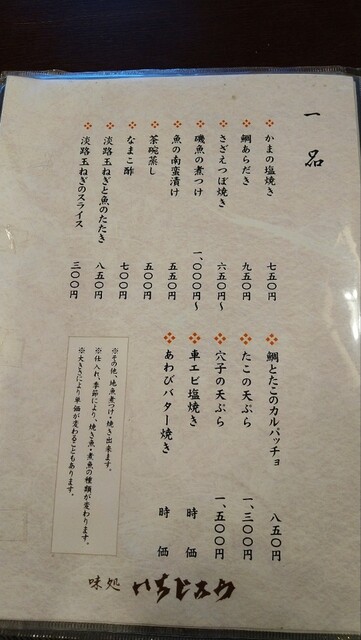 一品
かまの塩焼き 七五〇円
鯛あらだき 九五〇円
さざえつぼ焼き 六五〇円〜
磯魚の煮つけ 一、〇〇〇円〜
魚の南蛮漬け 五五〇円
茶碗蒸し 五〇〇円
なまこ酢 七〇〇円
淡路玉ねぎと魚のたたき 八五〇円
淡路玉ねぎのスライス 三〇〇円
鯛とたこのカルパッチョ 八五〇円
たこの天ぷら 一、三〇〇円
穴子の天ぷら 一、五〇〇円
車エビ塩焼き 時価
あわびバター焼き 時価
※その他、地魚煮つけ・焼き出来ます。
※仕入れ、季節により、焼き魚・煮魚の種類が変わります。
※大きさにより単価が変わることもあります。
味処